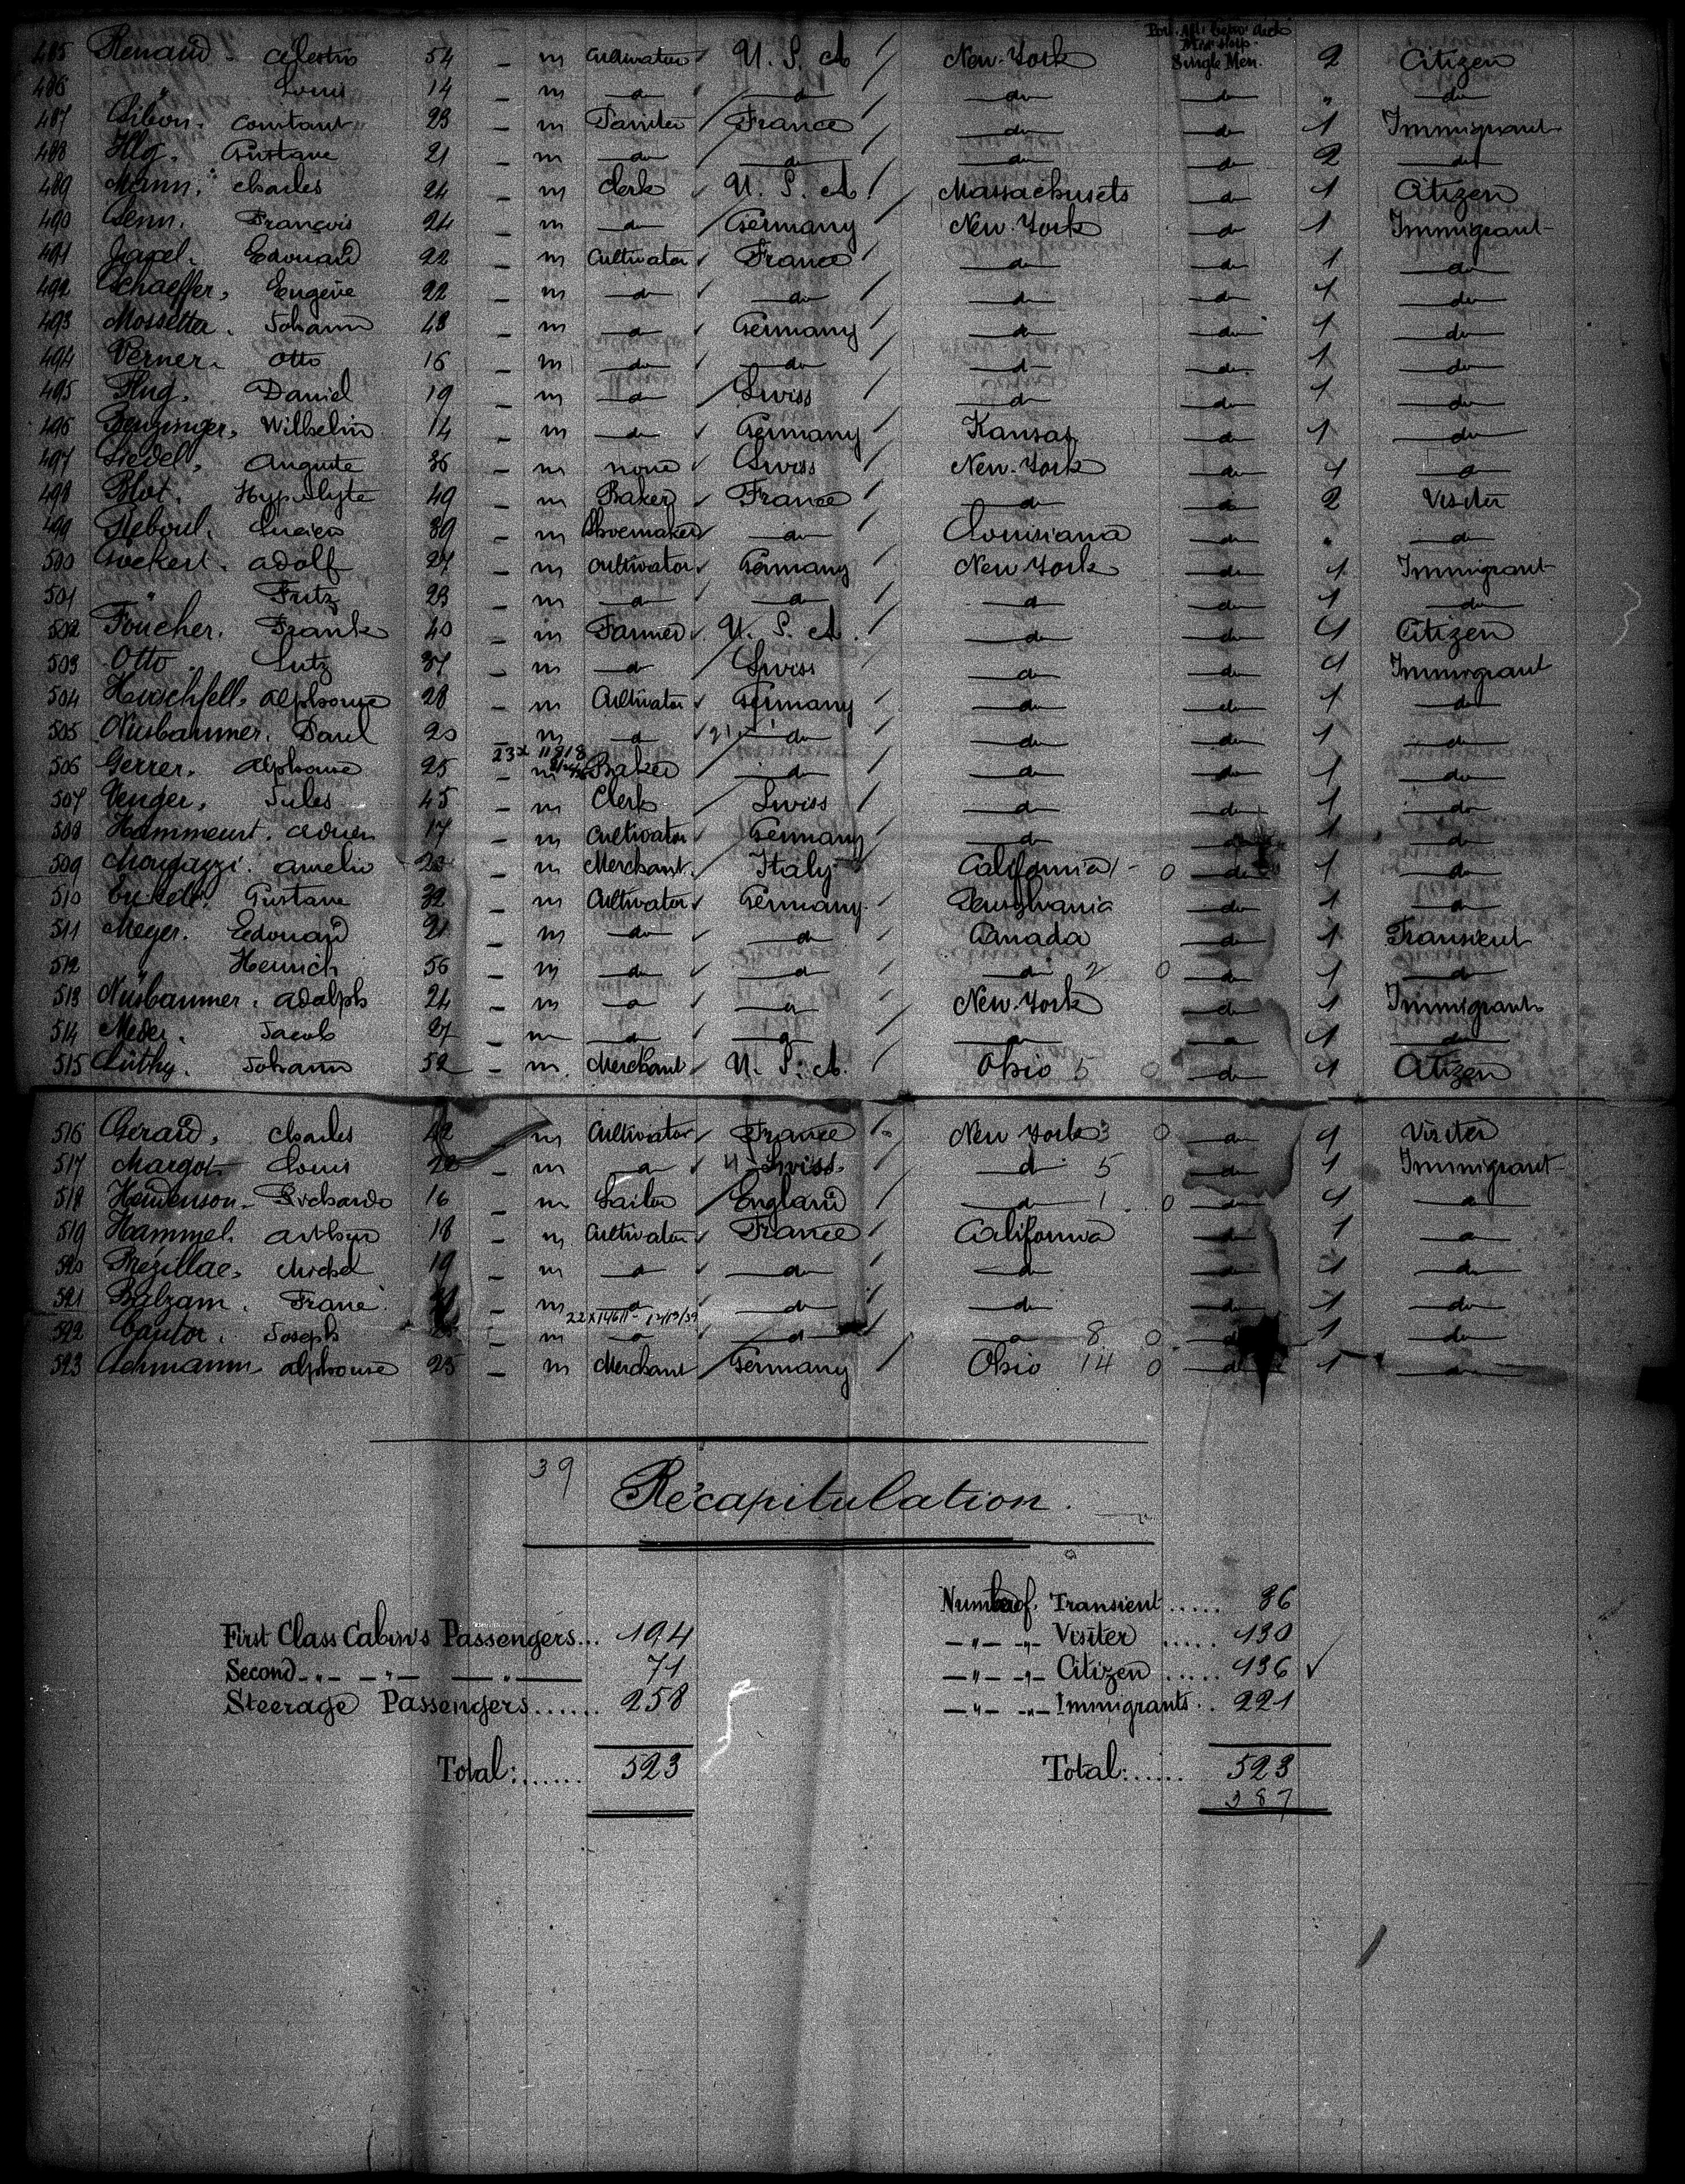 485 Renaud - Celestin 54 - m Cultivator U. S. A New-York Single Men. 2 Citizen
486 " Louis 14 - m do do do do " do
487 Constant 23 - m Painter France do do 1 Immigrant
488 Gustave 21 - m do do do do 2 do
489 Mann. Charles 24 - m Clerk U. S. A Massachusets do 1 Citizen
490 Senn. François 24 - m do Germany New-York do 1 Immigrant
491 Edouard 22 - m Cultivator France do do 1 do
492 Schaeffer, Eugène 22 - m do do do do 1 do
493 Mossetta. Johann 48 - m do Germany do do 1 do
494 Verner. Otto 16 - m do do do do 1 do
495 Hug. Daniel 19 - m do Swiss do do 1 do
496 Wilhelm 14 - m do Germany Kansas do 1 do
497 Siedel, Auguste 36 - m none Swiss New-York do 1 do
498 Blot. Hyppolyte 49 - m Baker France do do 2 Visiter
499 Reboul. Lucien 39 - m Shoemaker do Louisiana do " do
500 Adolf 27 - m Cultivator Germany New York do 1 Immigrant
501 " Fritz 23 - m do do do do 1 do
502 Foucher. Frank 40 - m Farmer U. S. A. do do 1 Citizen
503 Otto. Lutz 37 - m do Swiss do do 1 Immigrant
504 Alphonse 28 - m Cultivator Germany do do 1 do
505 Nusbaumer. Paul 20 m do do do do 1 do
506 Gerrer. Alphonse 25 - m Baker do do do 1 do
507 Venger, Jules 45 - m Clerk Swiss do do 1 do
508 17 - m Cultivator Germany do do 1 do
509 Amelio - m Merchant Italy California 0 do 1 do
510 Gustave 32 - m Cultivator Germany. Pensylvania do 1 do
511 Meyer. Edouard 21 - m do do Canada do 1 Transient
512 " Heinrich 56 - m do do do 2 0 do 1 do
513 Nusbaumer. Adolph 24 - m do do New-York do 1 Immigrant
514 Meder. Jacob 27 - m do do do do 1 do
515 Lüthy. Johann 52 - m. Merchant U. S. A. Ohio 5 0 do 1 Citizen
516 Gerard, Charles 42 m Cultivator France New York 3 0 do 1 Visiter
517 Margot Louis - m do Swiss. do 5 do 1 Immigrant
518 Richardo 16 - m Sailor England do 1 0 do 1 do
519 Hammel. Arthur 18 - m Cultivator France California do 1 do
520 Michel 19 - m do do do do 1 do
521 Balzam. - m do do do do 1 do
522 Cantor. Joseph - m do do do 8 0 do 1 do
523 Lehmann Alphonse 25 - m Merchant Germany Ohio 14 0 do 1 do
39
Récapitulation.
First Class Cabin's Passengers... 194
Second -"- -"- -"- 71
Steerage Passengers...... 258
Total:....... 523
Number of. Transient ..... 36
-"- -"- Visiter ..... 130
-"- -"- Citizen ..... 136 ✓
-"- -"- Immigrants.. 221
Total:...... 523
387